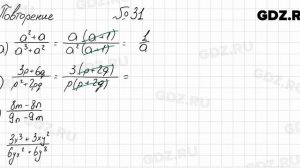 Повторение № 31
GDZ.RU
) (a² + a)/(a³ + a²) = a(a+1)/a²(a+1) = 1/a
) (3p+6q)/(p²+2pq) = 3(p+2q)/p(p+2q) =
(8m-8n)/(9n-9m)
(3y³+3xy²)/(6yx²+6y³)